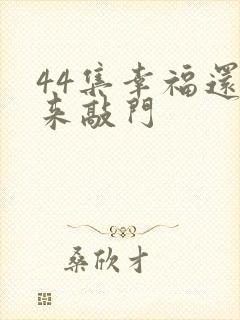 44集幸福還
来敲门
桑欣才